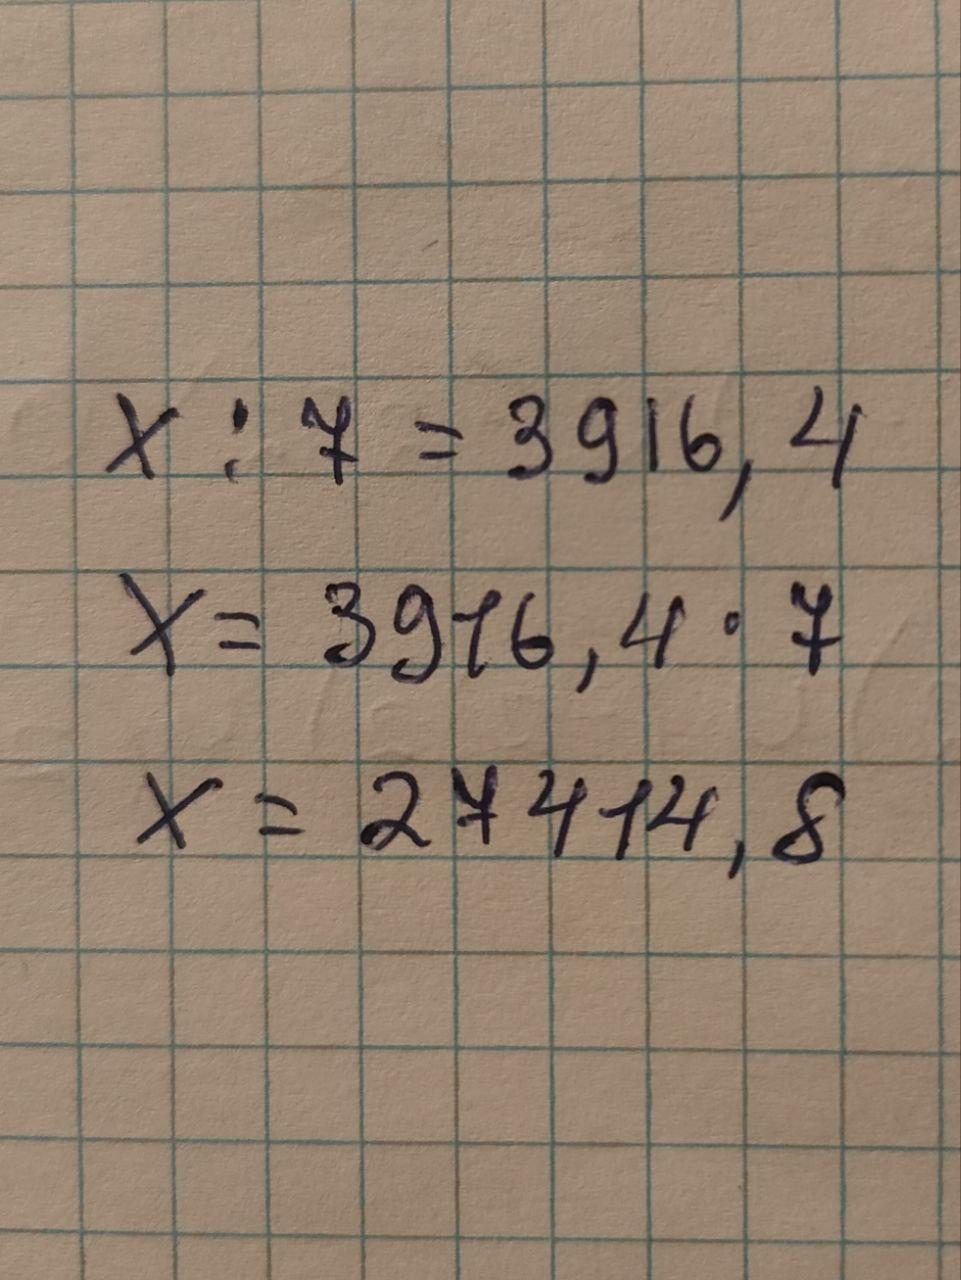 x : 7 = 3916,4
x = 3916,4 · 7
x = 27414,8